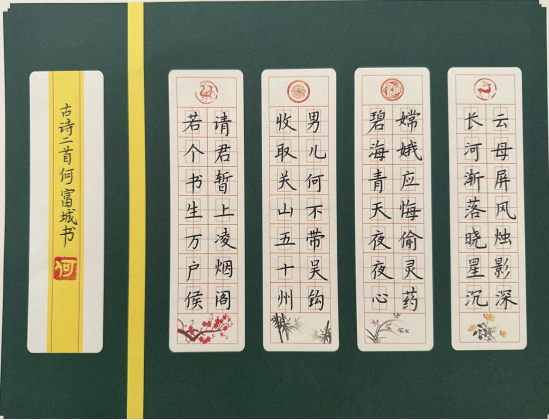 云母屏风烛影深
长河渐落晓星沉
嫦娥应悔偷灵药
碧海青天夜夜心
男儿何不带吴钩
收取关山五十州
请君暂上凌烟阁
若个书生万户侯
古诗二首何富城书
何